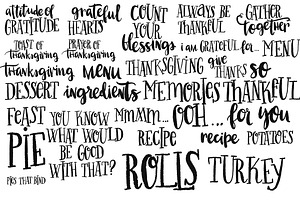 attitude of
GRATITUDE
grateful
HEARTS
COUNT
YOUR
blessings
ALWAYS BE
THANKFUL
GATHER
together
TOAST OF
thanksgiving
PRAYER OF
thanksgiving
i AM GRATEFUL FOR...
MENU
thanksgiving
MENU
THANKSGIVING
GIVE
THANKS
SO
DESSERT
ingredients
MEMORIES
THANKFUL
FEAST
YOU KNOW
WHAT WOULD
BE GOOD
WITH THAT?
MMMM...
OOH...
for you
PIE
RECIPE
recipe
POTATOES
PIES THAT BIND
ROLLS
TURKEY